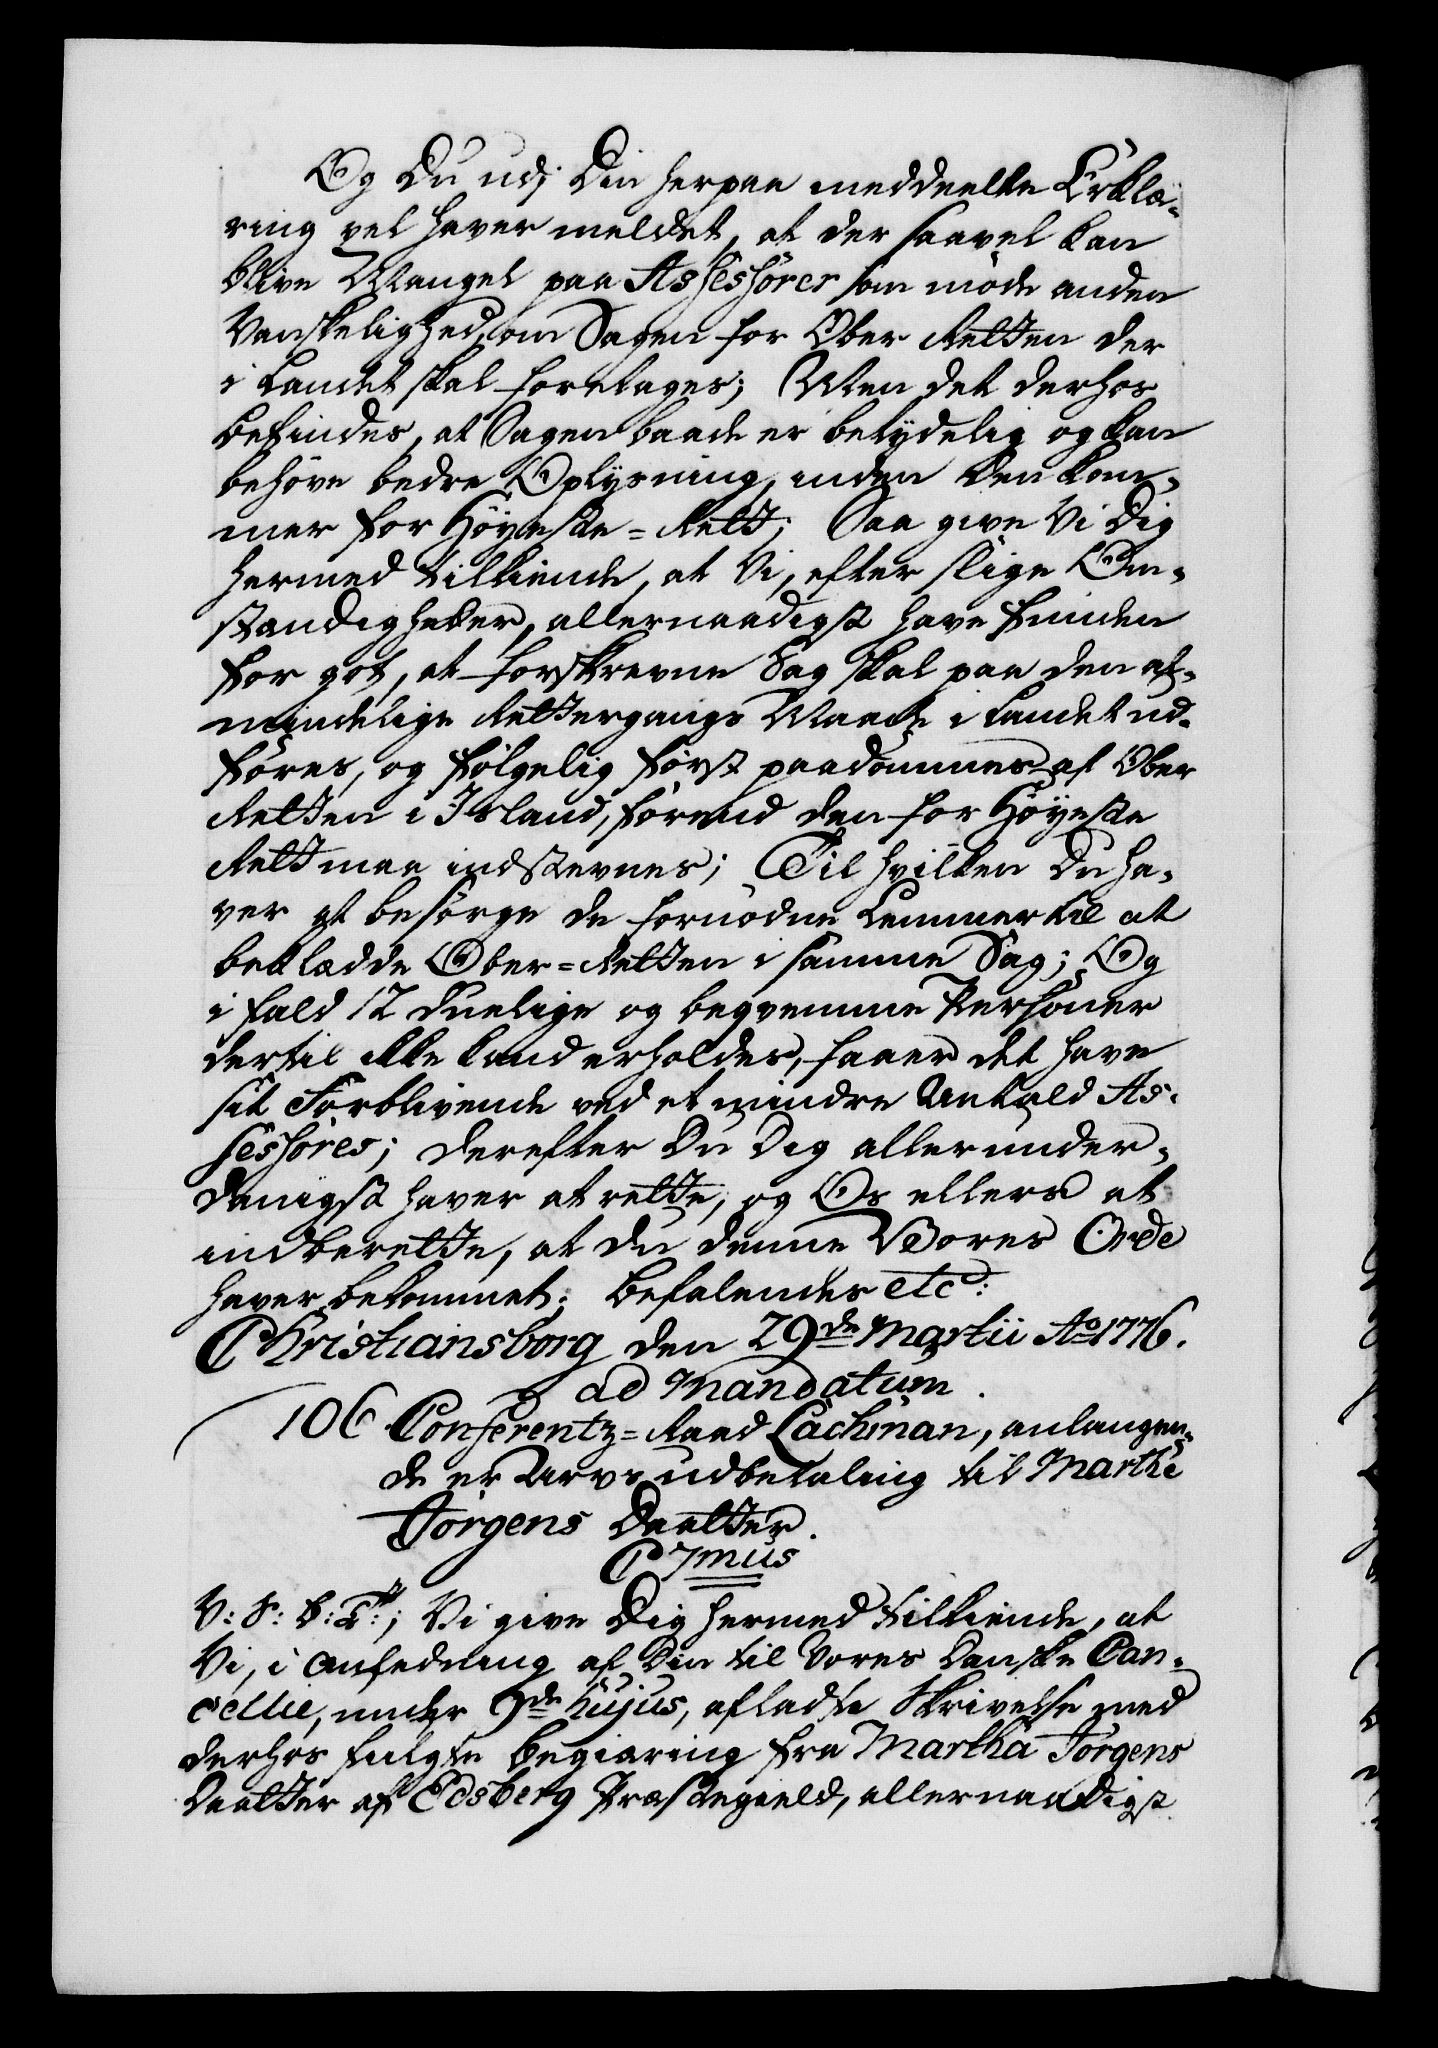 Og Du udj Din herpaa meddeelte Erklæ-
ring vel haver meldet, at der saavel kan
blive Mangel paa Assessorer som møde anden
Vanskelighed, om Sagen for Ober Retten der
i Landet skal foretages; Men det derhos
befindes, at Sagen baade er betydelig og kan
behöve bedre Oplysning, inden den kom-
mer for Höyeste=Rett; Saa give Vi Dig
hermed tilkiende, at Vi, efter slige Om-
standigheder, allernaadigst have funden
for got, at forskrevne Sag skal paa den al-
mindelige Rettergangs Maade i Landet ud-
föres, og fölgelig först paadömmes af Ober
Retten i Island, förend den for Höyeste
Rett maa indstevnes; Til hvilken Du ha-
ver at besörge de fornödne Lemmer til at
beklædde Ober=Retten i samme Sag; Og
i fald 12 duelige og beqvemme Persohner
dertil ikke kand erholdes, faaer det have
sit Forblivende ved et mindre Antald As-
sessores; derefter Du Dig allerunder-
danigst haver at rette, og Os ellers at
indberette, at Du denne Vores Ordre
haver bekommet; Befalendes etc:
Christiansborg den 29de Martii Ao 1776.
ad Mandatum.
106 Conferentz=Raad Lachman, anlangen-
de en Arvs udbetaling til Marthe
Jörgens Daatter.
C 7mus
V: S: B: T:; Vi give Dig hermed tilkiende, at
Vi, i Anledning af Din til Vores Danske Can-
cellie, under 9de hujus, afladte Skrivelse med
derhos fulgte begiæring fra Martha Jörgens
Daatter af Edsberg Præstegield, allernaadigst